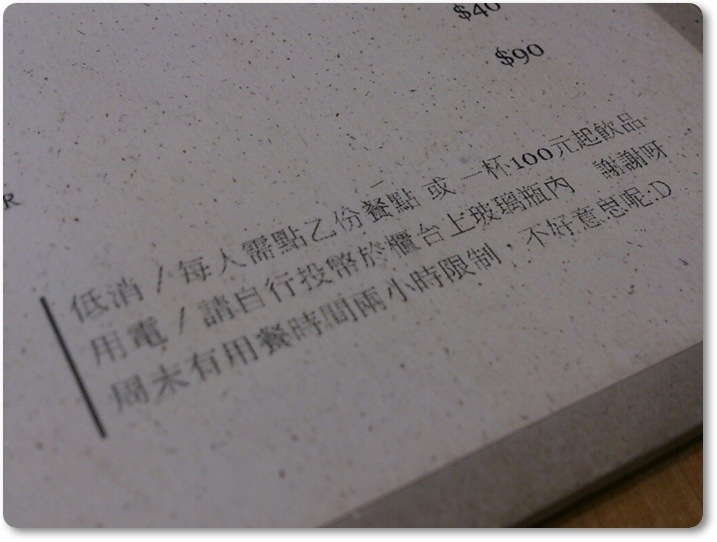 $40
$90
R
低消 / 每人需點乙份餐點 或 一杯100元起飲品
用電 / 請自行投幣於櫃台上玻璃瓶內 謝謝呀
周末有用餐時間兩小時限制，不好意思呢:D